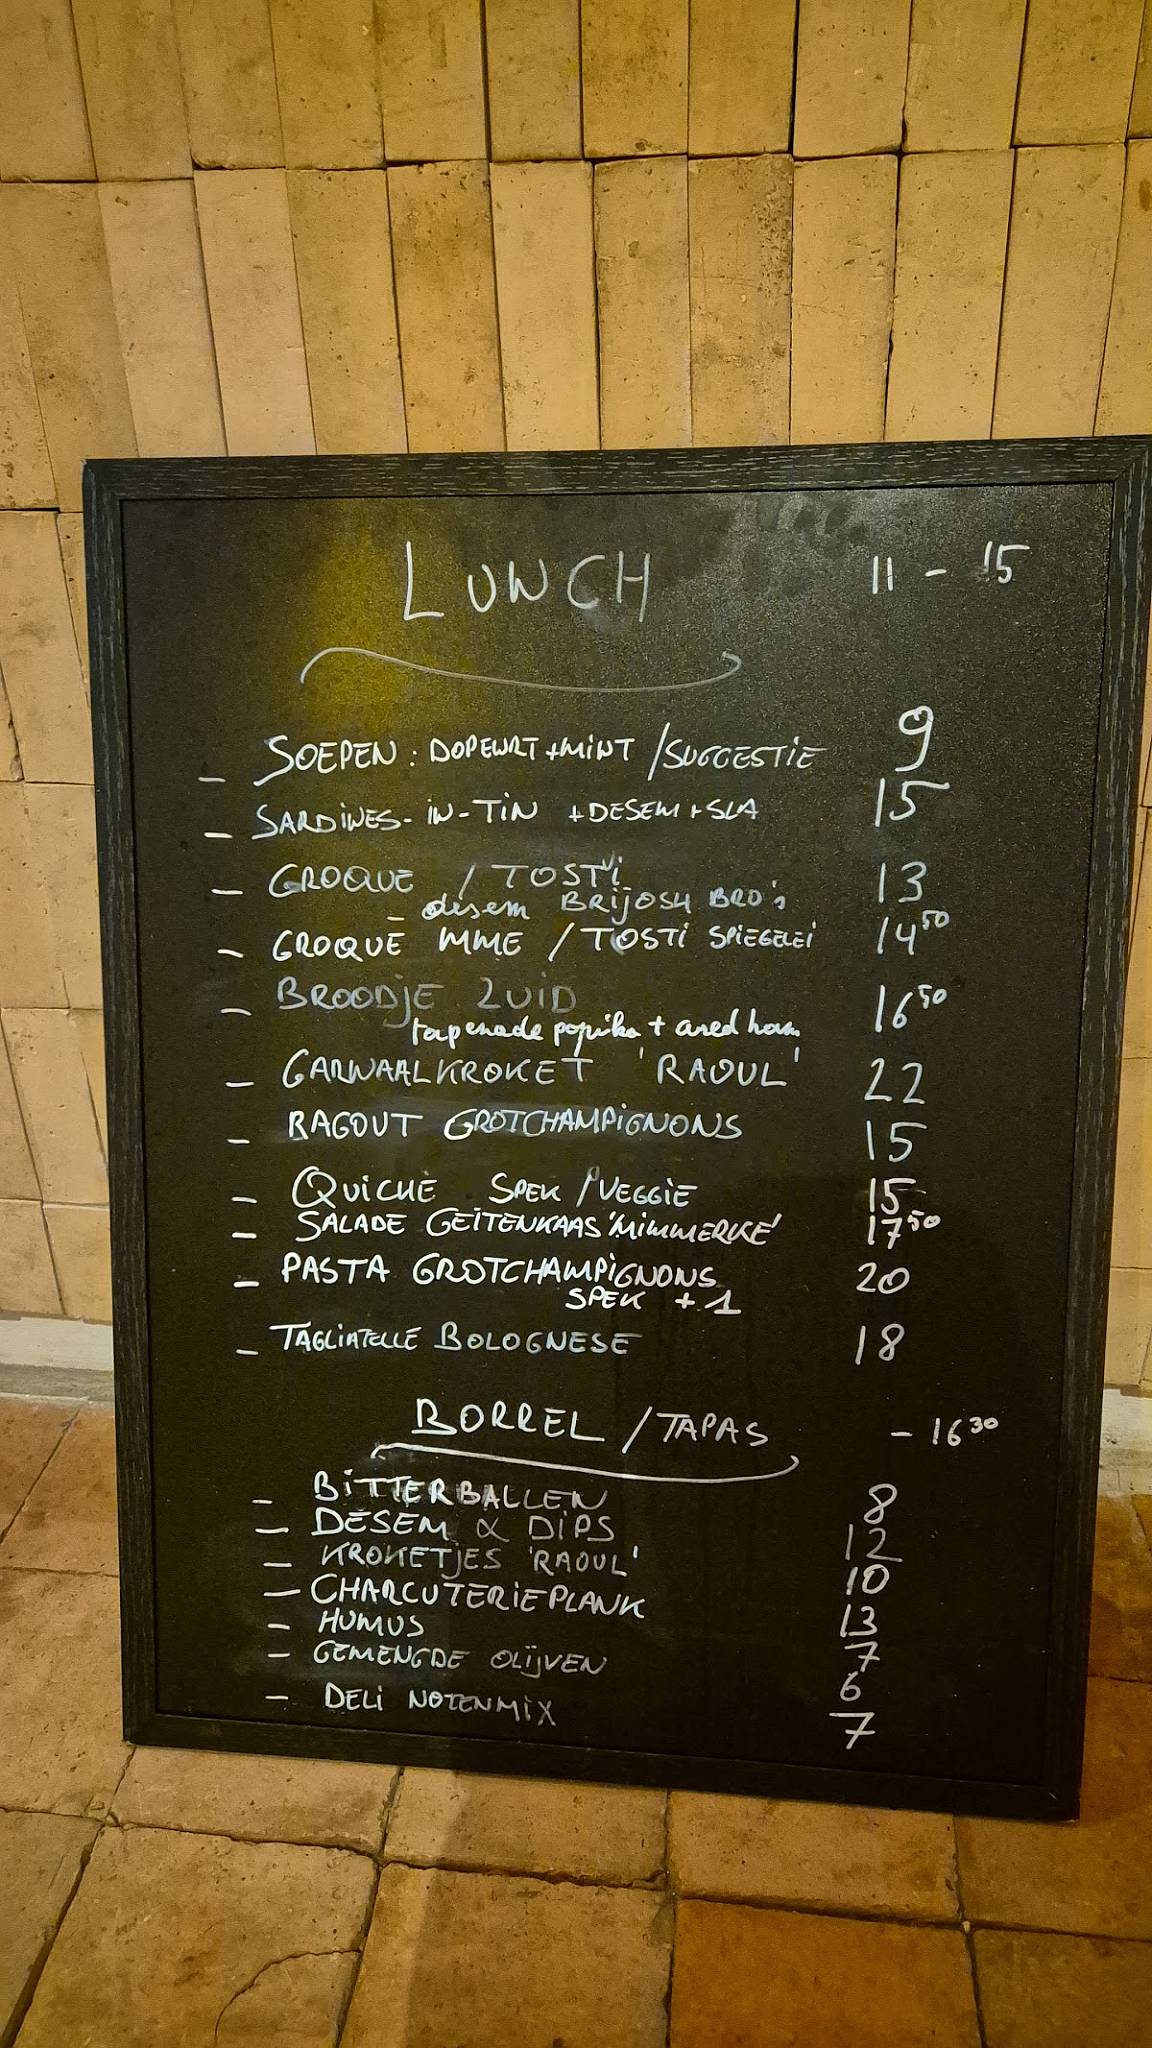 LUNCH 11 - 15
- SOEPEN : DOPEWRT + MINT / SUGGESTIE 9
- SARDINES-IN-TIN + DESEM + SLA 15
- CROQUE / TOSTI 13
- desem BRIJOSH BRO's
- CROQUE MME / TOSTI SPIEGELEI 14 50
- BROODJE ZUID 16 50
tapenade paprika + ared ham
- GARNAALKROKET 'RAOUL' 22
- RAGOUT GROTCHAMPIGNONS 15
- QUICHE SPEK / VEGGIE 15
- SALADE GEITENKAAS 'MIMMERKE' 17 50
- PASTA GROTCHAMPIGNONS 20
SPEK + 1
- TAGLIATELLE BOLOGNESE 18
BORREL / TAPAS - 16 30
- BITTERBALLEN 8
- DESEM & DIPS 12
- KROKETJES 'RAOUL' 10
- CHARCUTERIEPLANK 13
- HUMUS 7
- GEMENGDE OLIJVEN 6
- DELI NOTENMIX 7